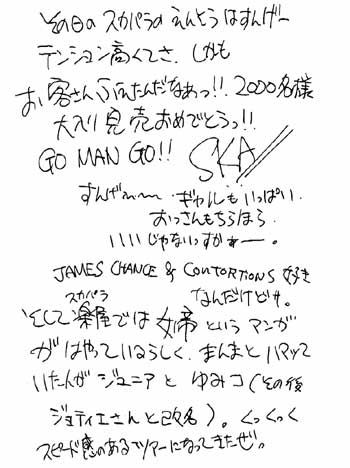 その日のスカパラのえんそうはすんげー
テンション高くてさ、しかも
お客さんふえたんだなぁっ!! 2000名様
大入り完売おめでとうっ!!
GO MAN GO!! SKA//
すんげ〜〜 ギャルもいっぱい.
おっさんもちらほら.
いいじゃないっすかぁー。
JAMES CHANCE & CONTORTIONS 好き
なんだけどサ。
スカパラ
そして楽屋では女帝というマンガ
がはやっているらしく、まんまとハマッて
いたんがジュニアとゆみコ(その後
ジョティエさんと改名)。くっくっく
スピード感のあるツアーになってきたぜっ。